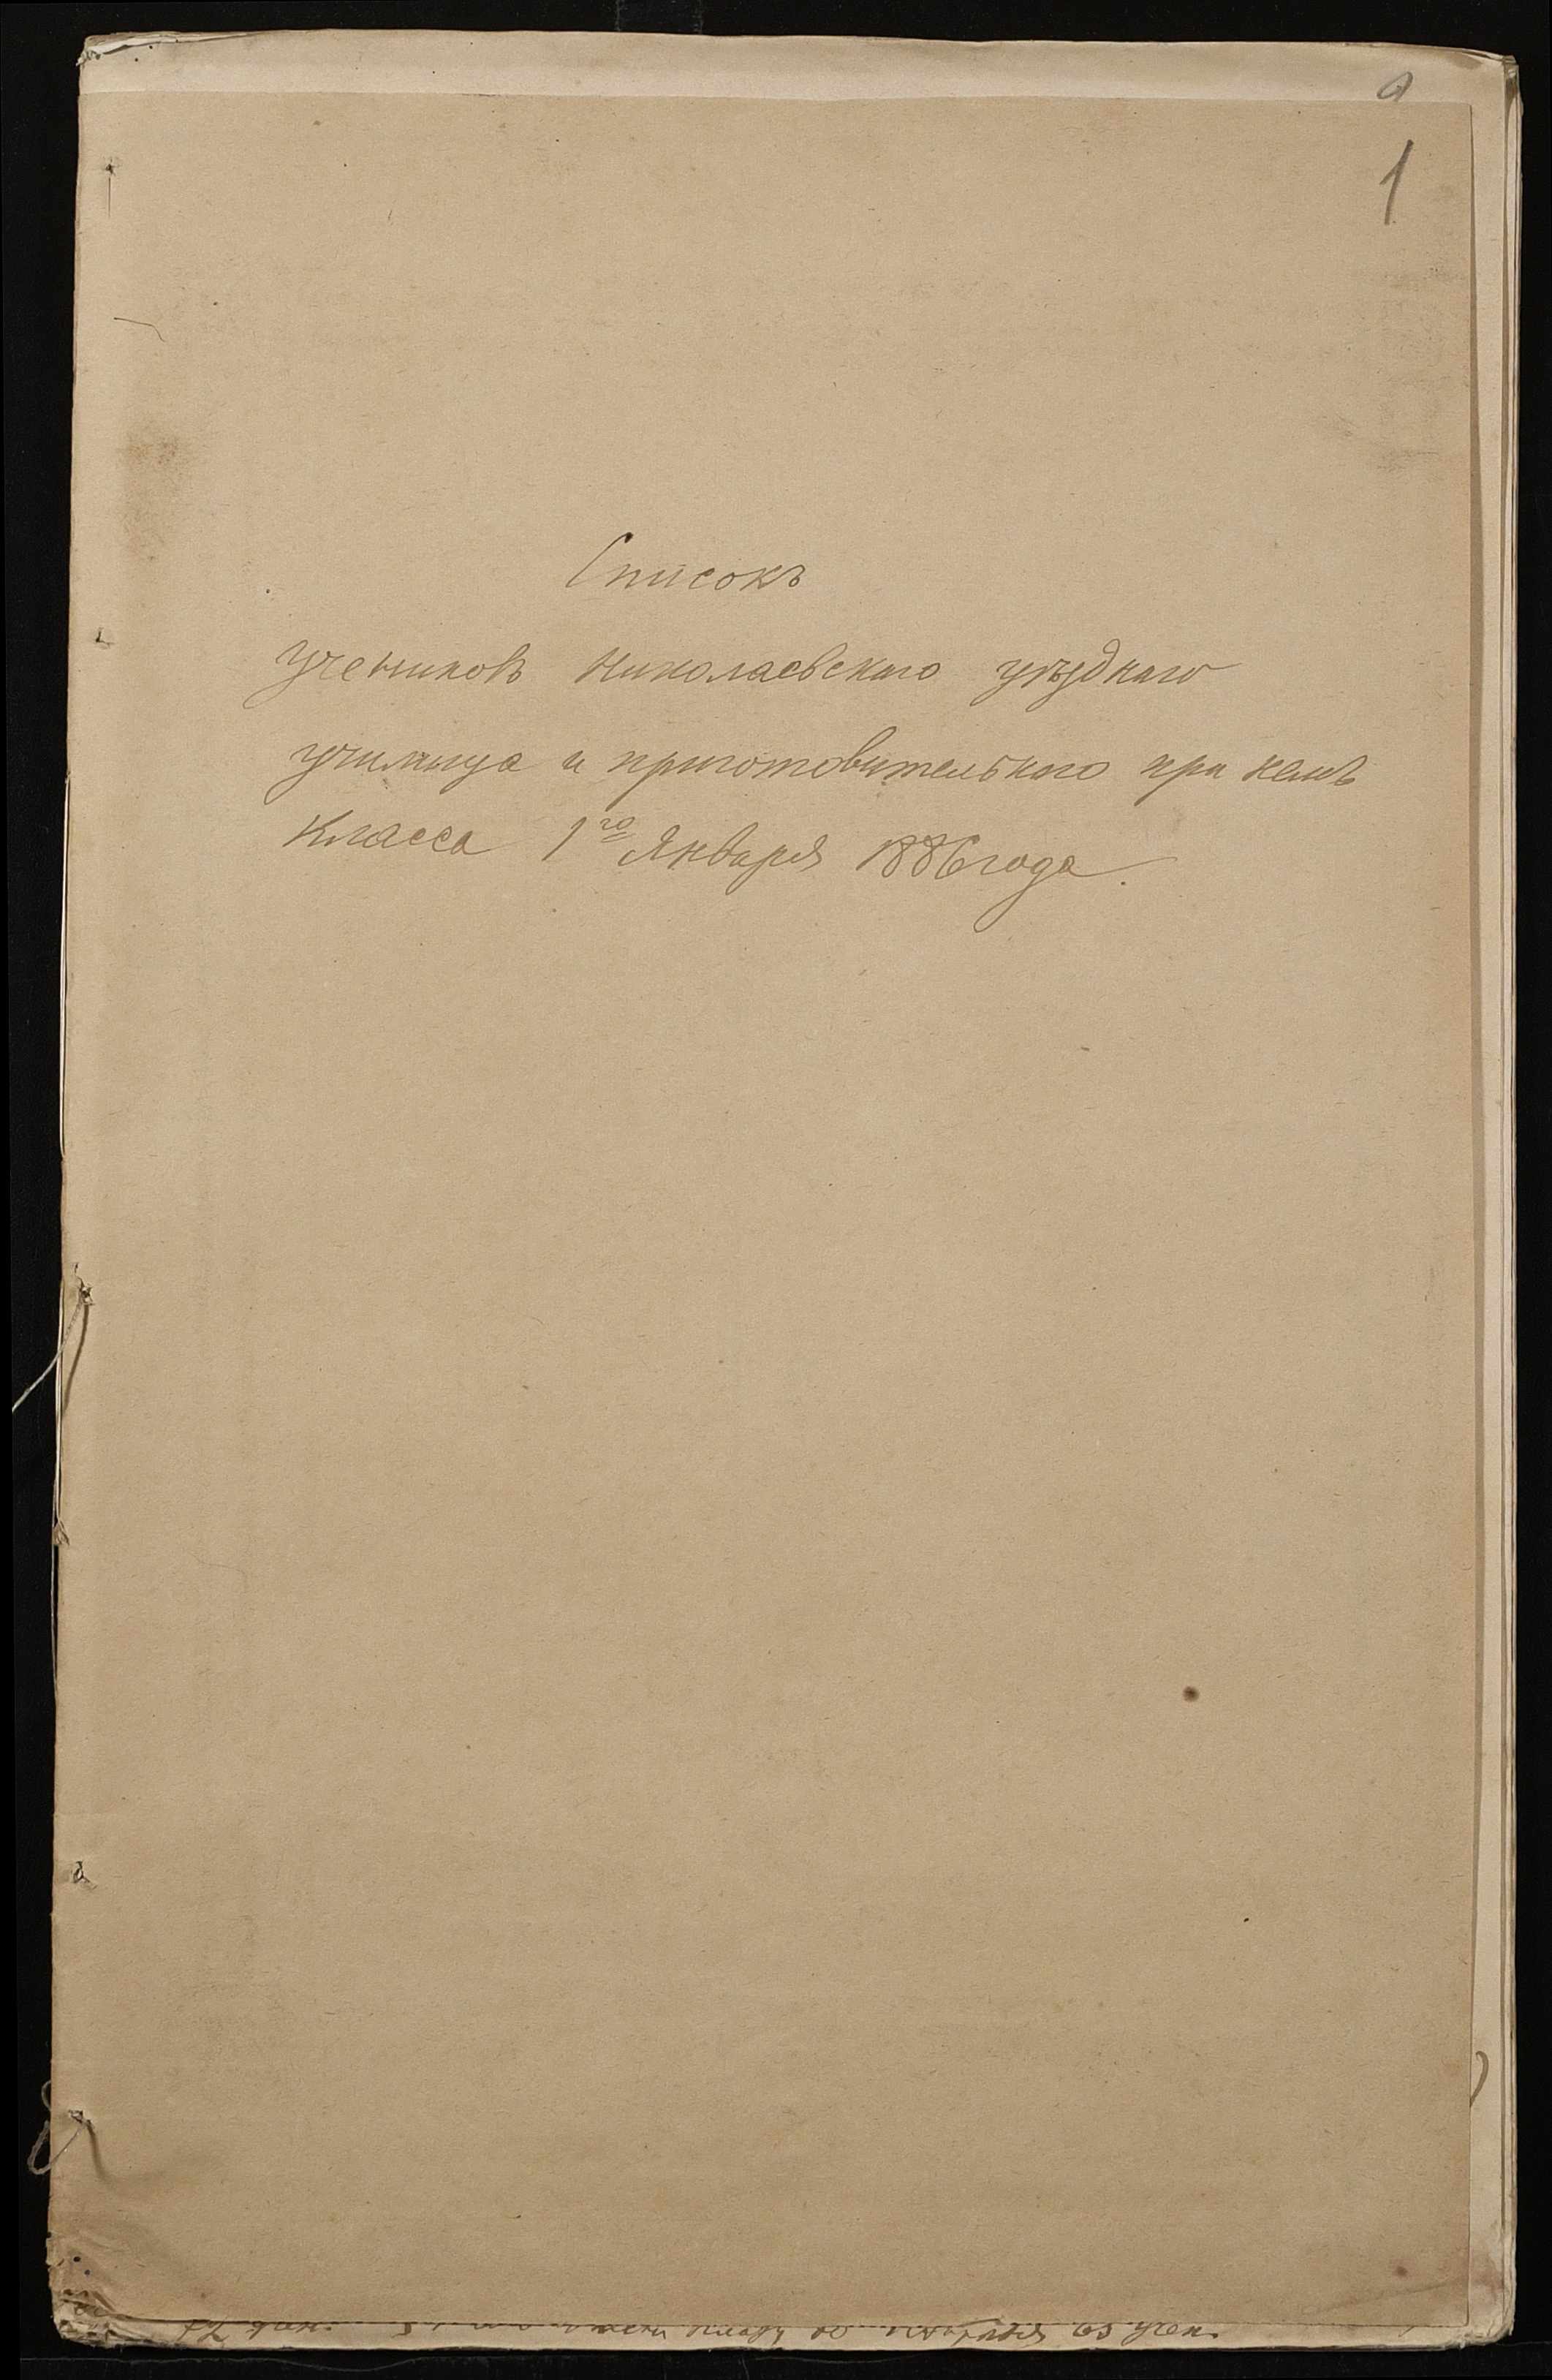 1
Списокъ
Учениковъ Николаевскаго уѣзднаго
училища и приготовительнаго при немъ
класса 1го Января 1886 года.
65 учен.